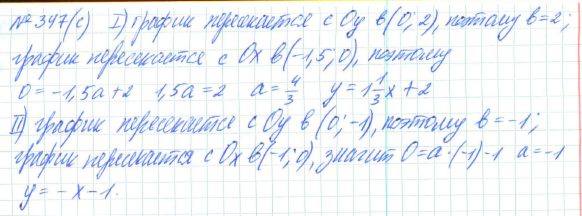 № 347(с) I) график пересекается с Оу в (0; 2), поэтому в=2;
график пересекается с Ох в (-1,5; 0), поэтому
0 = -1,5а+2 1,5а=2 а=4/3 у=1 1/3 х+2
II) график пересекается с Оу в (0; -1), поэтому в=-1;
график пересекается с Ох в (-1; 0), значит 0=а·(-1)-1 а=-1
у=-х-1.